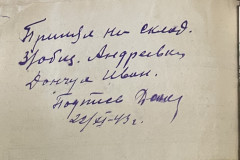 Принял на склад.
Зробиц. Андреевки
Дончук Иван.
Подпись
22/XI-43 г.